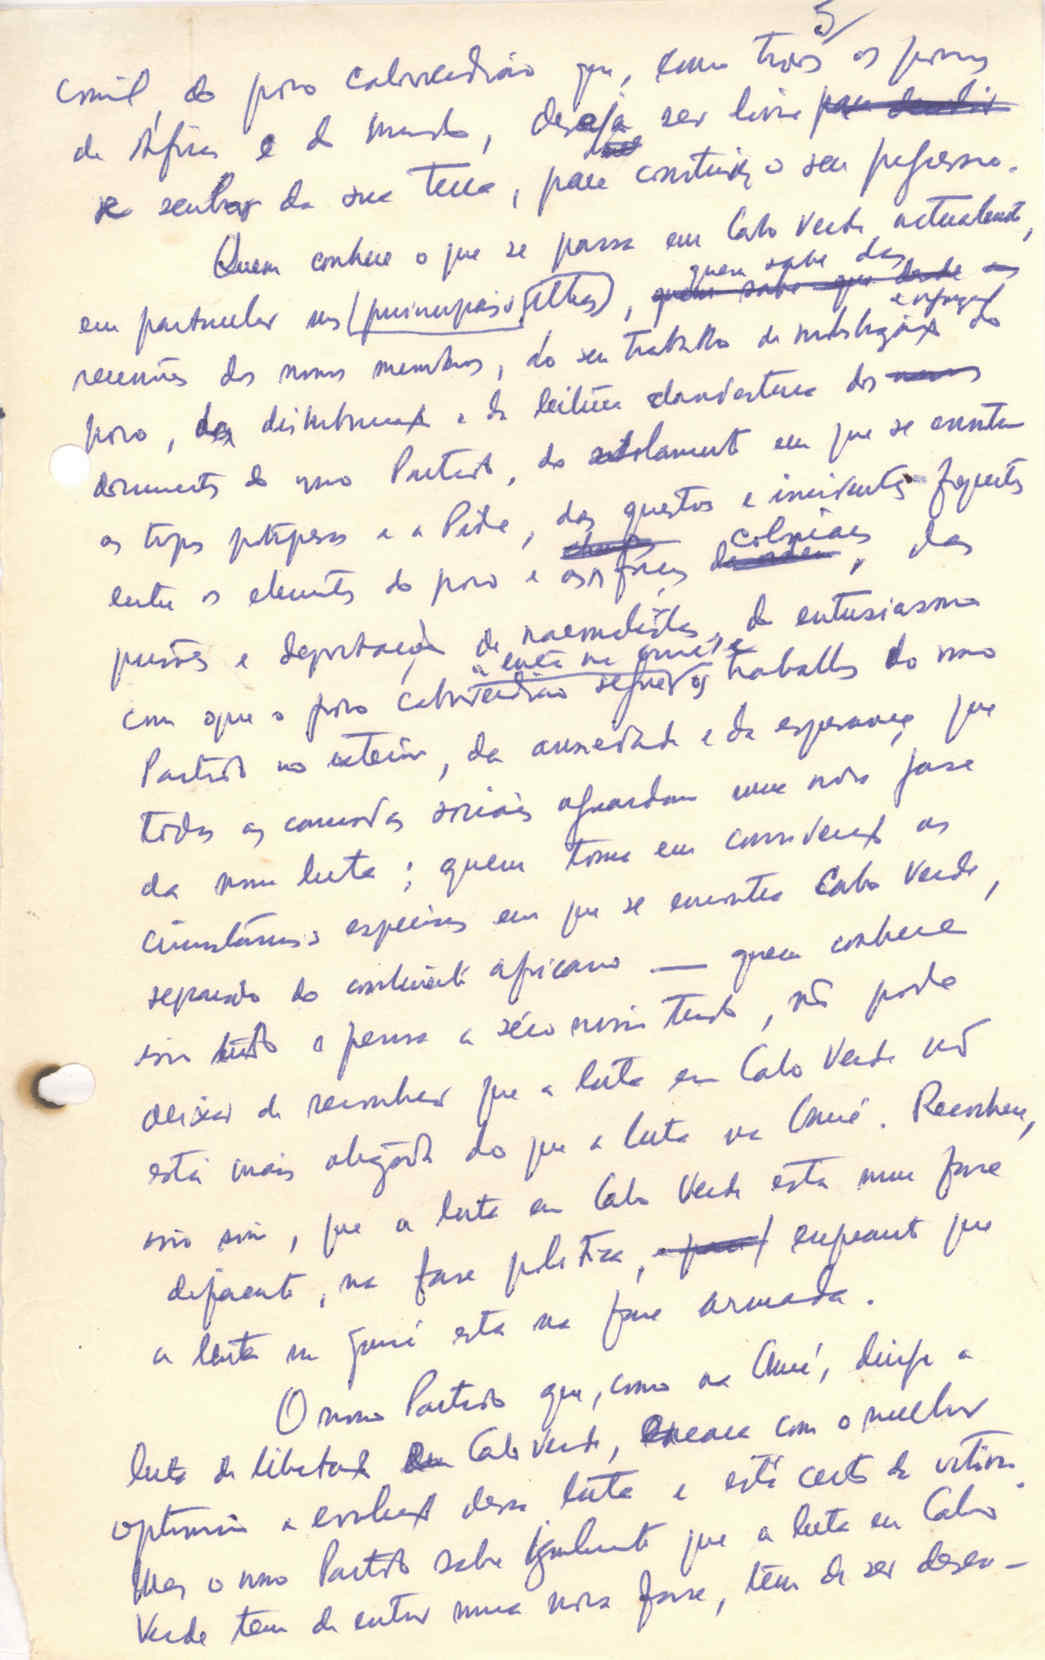 5/
do povo caboverdiano que, como todos os povos
de África e do mundo, deseja ser livre para decidir
e senhor da sua terra, para construir o seu progresso.
Quem conhece o que se passa em Cabo Verde actualmente,
quem sabe das
em particular nas (principais ilhas), quem sabe que desde as
reuniões dos nossos membros, do seu trabalho de mobilização do
povo, da distribuição e da leitura clandestina dos nossos
documentos do nosso Partido, do isolamento em que se encontram
as tropas portuguesas e a Pide, dos e incidentes frequentes
coloniais
entre os elementos do povo e as forças da ordem, das
prisões e deportações de nacionalistas, do entusiasmo
com que o povo caboverdiano segue os trabalhos do nosso
Partido no exterior, da ansiedade e da esperança que
todas as camadas sociais aguardam uma nova fase
da nossa luta; quem toma em consideração as
circunstâncias especiais em que se encontra Cabo Verde,
separado do continente africano — quem conhece
isso tudo e pensa a sério nisso tudo, não pode
deixar de reconhecer que a luta em Cabo Verde não
está mais atrasada do que a luta na Guiné. Reconhece,
isso sim, que a luta em Cabo Verde está numa fase
diferente, na fase política, enquanto que
a luta na Guiné está na fase armada.
O nosso Partido que, como na Guiné, dirige a
luta de libertação em Cabo Verde, encara com o melhor
optimismo a evolução dessa luta e está certo da vitória.
Mas o nosso Partido sabe igualmente que a luta em Cabo
Verde tem de entrar numa nova fase, tem de ser desen-